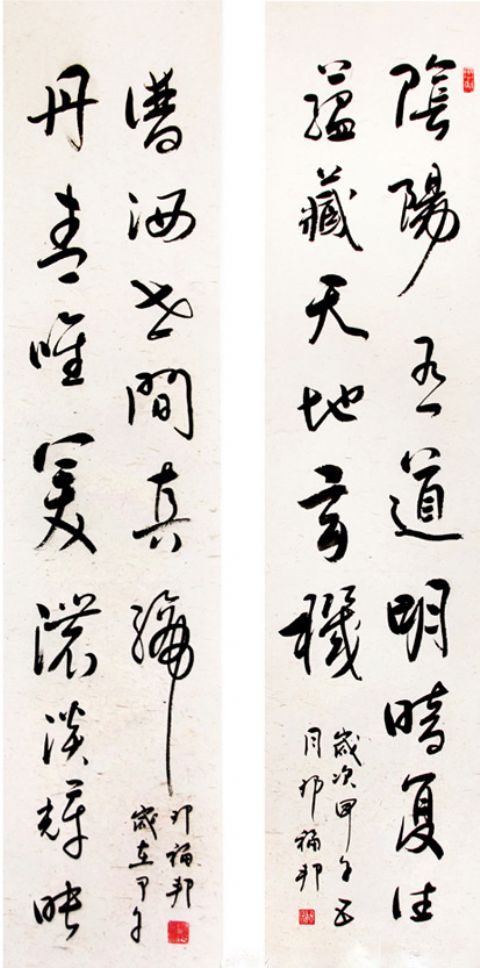 陰陽道明暗复往
蘊藏天地玄機
歲次甲午五
月邢福邦
丹青唯美濃淡輝映
洒世間真諦
歲在甲午
邢福邦